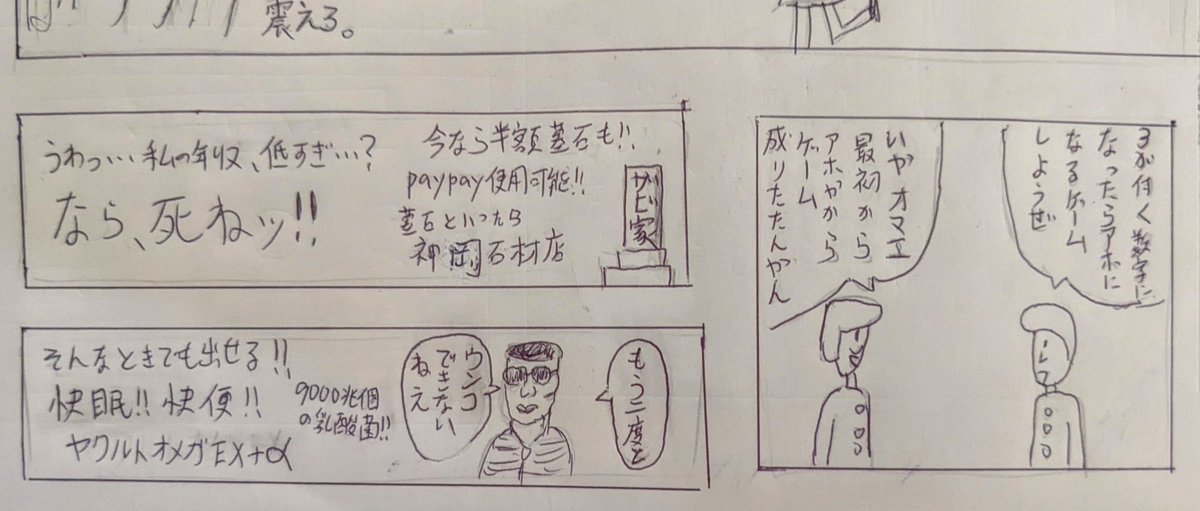 震えろ。
うわっ…私の年収、低すぎ…?
なら、死ねッ!!
今なら半額墓石も!!
paypay使用可能!!
墓石といったら
神岡石材店
ザビ家
そんなときでも出せる!!
快眠!!快便!!
ヤクルトオメガEX+α
9000兆個
の乳酸菌!!
もう二度と
ウンコ
できない
ねえ
3が付く数字に
なったらアホに
なるゲーム
しようぜ
いやオマエ
最初から
アホやから
ゲーム
成りたたんやん